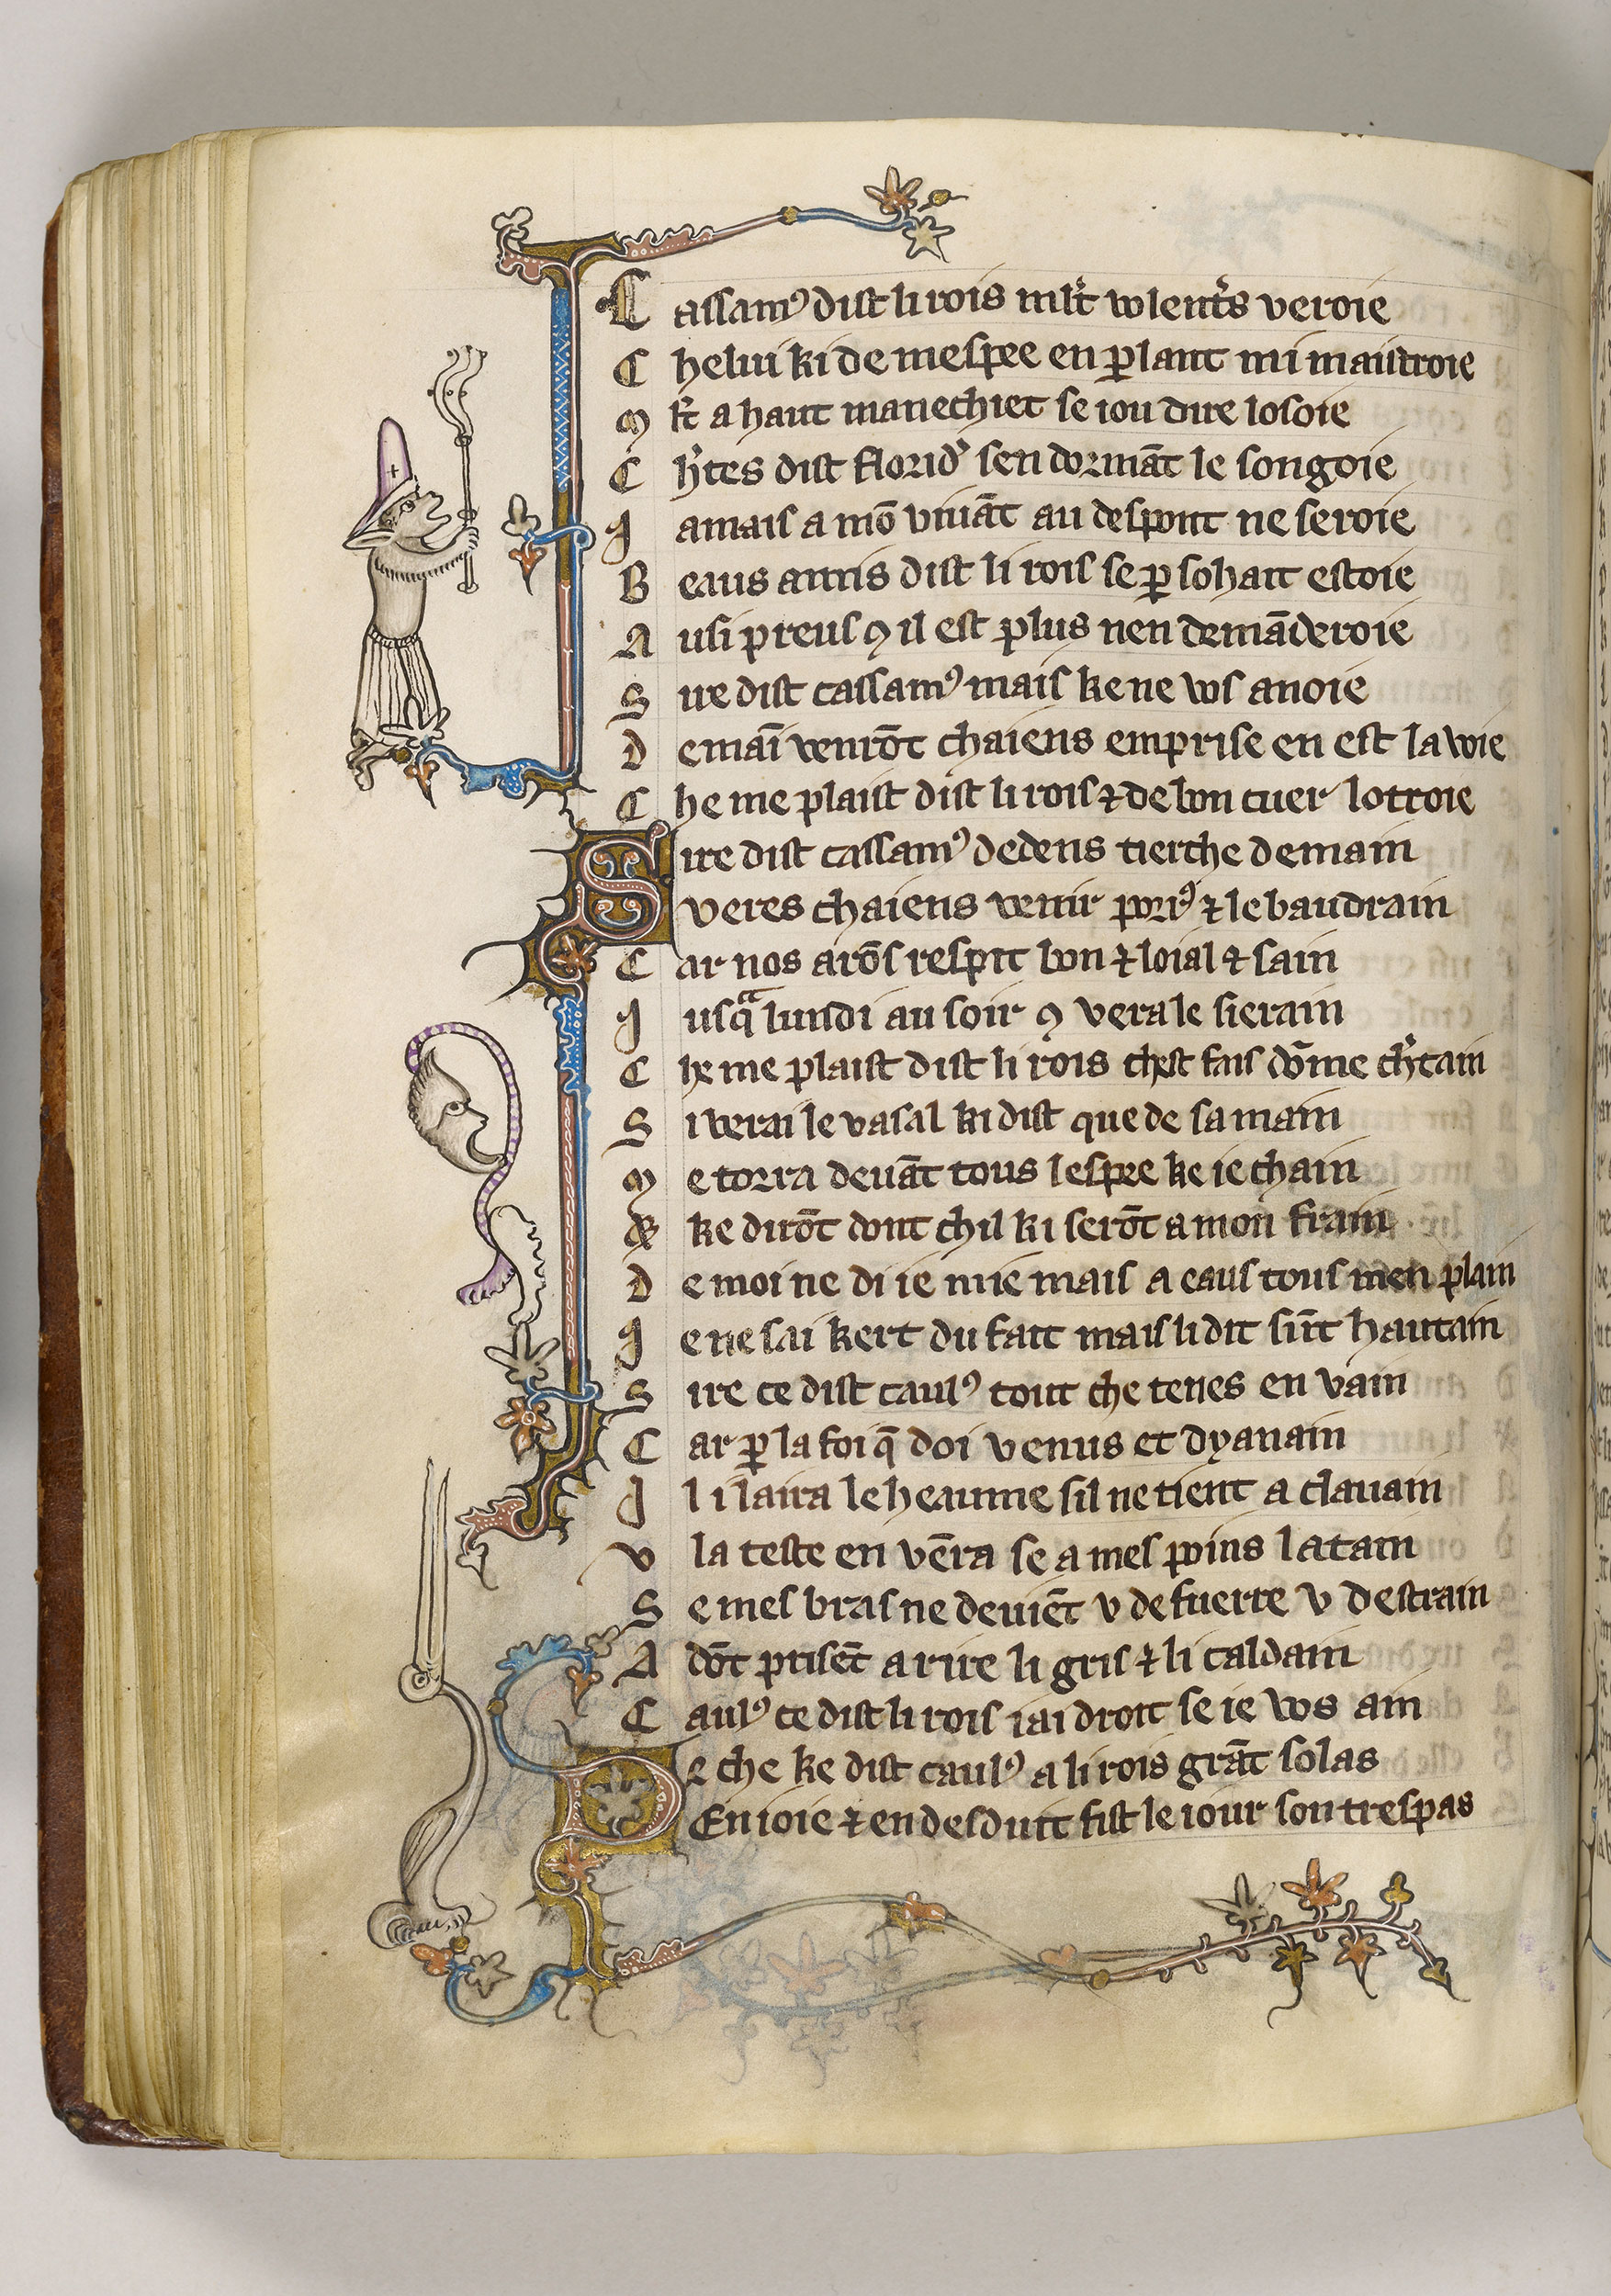 Cassamꝰ dist li rois mlt̄ volent's veroie
Chelui ki de mespee en ꝑlant mi maistroie
Mlt̄ a haut manechiet se iou dire losoie
Ch'tes dist florid' sen dormāt le songoie
Jamais a mō viuāt au despoir ne seroie
Beaus amis dist li rois se ꝑ sohait estoie
Ausi preus ꝯ il est plus nen demāderoie
Sire dist cassamꝰ mais ke ne vos anoie
Demaī venrōt chaiens emprise en est la voie
Che me plaist dist li rois ⁊ de bon cuer lotroie
Sire dist cassamꝰ dedens tierche demain
Veres chaiens venir porrꝰ ⁊ le baudrain
Car nos arōs respit bon ⁊ loial ⁊ sain
Jusqᷓ lundi au soir ꝯ verale sierain
Che me plaist dist li rois chest fais dōme ch'tain
Si verai le vasal ki dist que de sa main
Me torra deuāt tous lespee ke ie chain
Et ke dirōt dont chil ki serōt a mon frain
De moi ne di ie mie mais a eaus tous men plain
Je ne sai kert du fait mais li dit sūt hautain
Sire ce dist caulꝰ tout che tenes en vain
Car ꝑ la foi q̄ doi venus et dyanain
Jl i laira le heaume sil ne tient a clauain
V la teste en vēra se a mes poins latain
Se mes bras ne deuiēt v de fuerre v destrain
Adōt prisēt a rire li gris ⁊ li caldain
Caulꝰ ce dist li rois iai droit se ie vos ain
De che ke dist caulꝰ a li rois grāt solas
En ioie ⁊ en desduit fist le iour son trespas